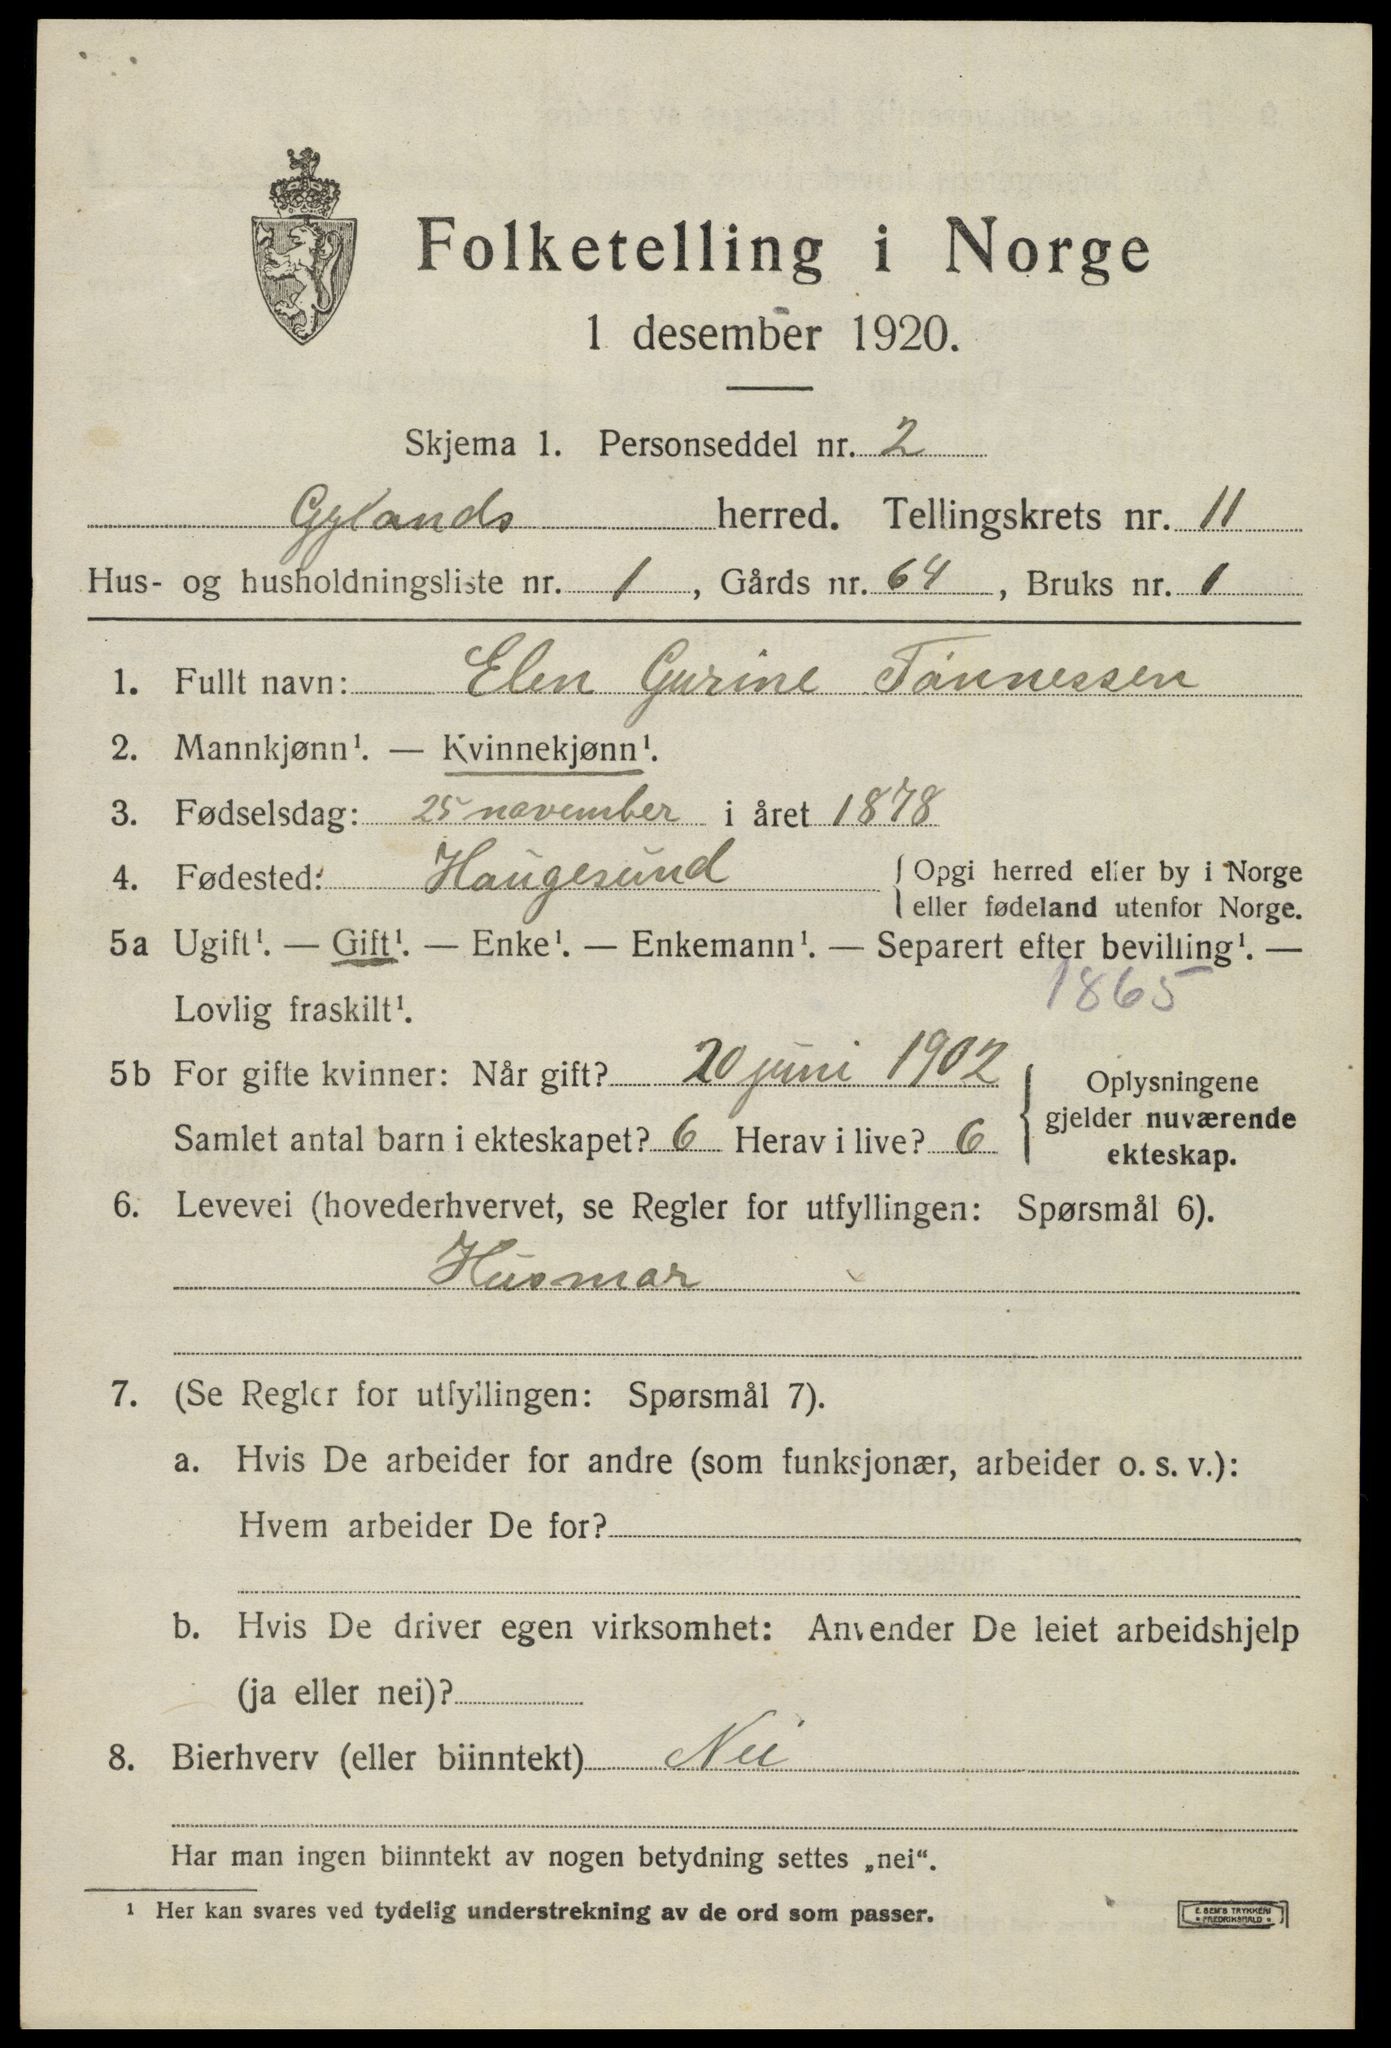 Folketelling i Norge
1 desember 1920.
Skjema 1. Personseddel nr. 2
Gylands herred. Tellingskrets nr. 11
Hus- og husholdningsliste nr. 1, Gårds nr. 64, Bruks nr. 1
1. Fullt navn: Elen Gurine Tønnessen
2. Mannkjønn¹. — Kvinnekjønn¹.
3. Fødselsdag: 25 november i året 1878
4. Fødested: Haugesund { Opgi herred eller by i Norge
eller fødeland utenfor Norge.
5a Ugift¹. — Gift¹. — Enke¹. — Enkemann¹. — Separert efter bevilling¹. —
Lovlig fraskilt¹. 1865
5b For gifte kvinner: Når gift? 20 juni 1902
Samlet antal barn i ekteskapet? 6 Herav i live? 6
{ Oplysningene
gjelder nuværende
ekteskap.
6. Levevei (hovederhvervet, se Regler for utfyllingen: Spørsmål 6).
Husmor
7. (Se Regler for utfyllingen: Spørsmål 7).
a. Hvis De arbeider for andre (som funksjonær, arbeider o. s. v.):
Hvem arbeider De for?
b. Hvis De driver egen virksomhet: Anvender De leiet arbeidshjelp
(ja eller nei)?
8. Bierhverv (eller biinntekt) Nei
Har man ingen biinntekt av nogen betydning settes „nei“.
¹ Her kan svares ved tydelig understrekning av de ord som passer.
E. SEM'S TRYKKERI
FREDRIKSHALD